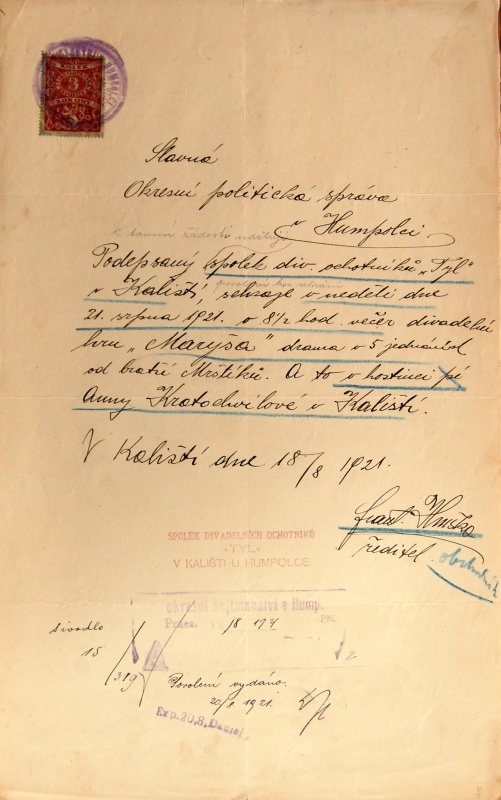 KOLEK
3
KORUNY
Slavná
Okresní politická správa
v Humpolci
Podepsaný spolek div. ochotníků „Tyl"
v Kališti, sehraje v neděli dne
21. srpna 1921. o 8 1/2 hod. večer divadelní
hru „Maryša" drama v 5 jednáních
od bratří Mrštíků. A to v hostinci pí
Anny Kratochvilové v Kališti.
V Kališti dne 18/8 1921.
Frant.
ředitel. obchodník
SPOLEK DIVADELNÍCH OCHOTNÍKŮ
„TYL"
V KALIŠTI U HUMPOLCE.
okresní hejtmanství v Hump.
Praes. /8 1921
divadlo
15
(319)
Povolení vydáno.
20/8 1921.
Exp. 20.8. Daniel